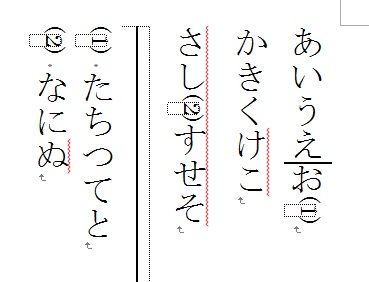 あいうえお(1)
かきくけこ
さし(2)すせそ
(1) たちつてと
(2) なにぬ